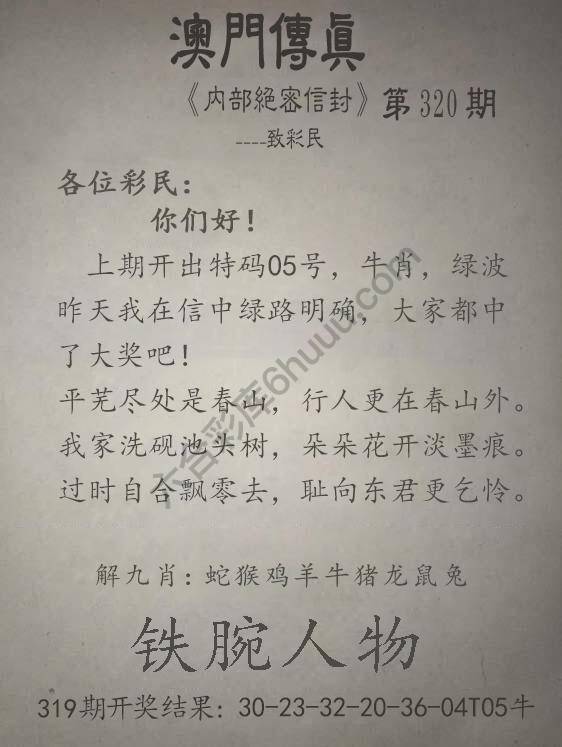 澳門傳眞
《内部絕密信封》第320期
----致彩民
各位彩民：
你们好！
上期开出特码05号，牛肖，绿波
昨天我在信中绿路明确，大家都中
了大奖吧！
平芜尽处是春山，行人更在春山外。
我家洗砚池头树，朵朵花开淡墨痕。
过时自合飘零去，耻向东君更乞怜。
解九肖：蛇猴鸡羊牛猪龙鼠兔
铁腕人物
319期开奖结果：30-23-32-20-36-04T05牛
六合彩库6huuu.com